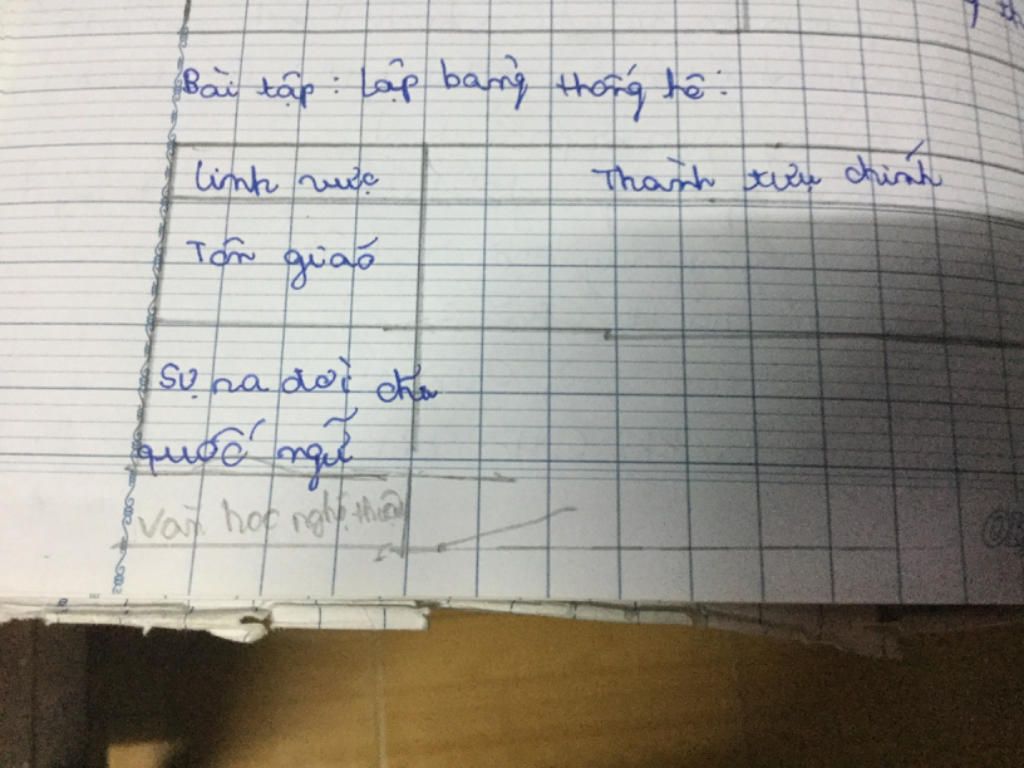 Bài tập : lập bảng thống kê :
lĩnh vực Thành tựu chính
Tôn giáo
Sự ra đời chữ
quốc ngữ
Văn học nghệ thuật